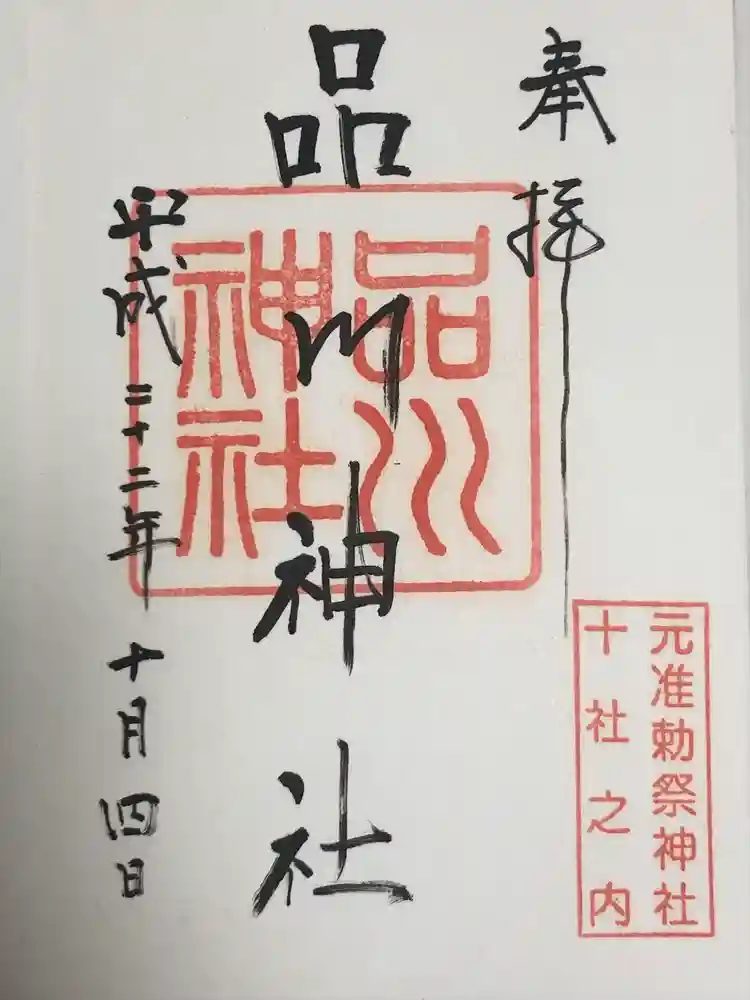 奉拝
元准勅祭神社
十社之内
品川神社
品川
神社
平成二十二年十月四日